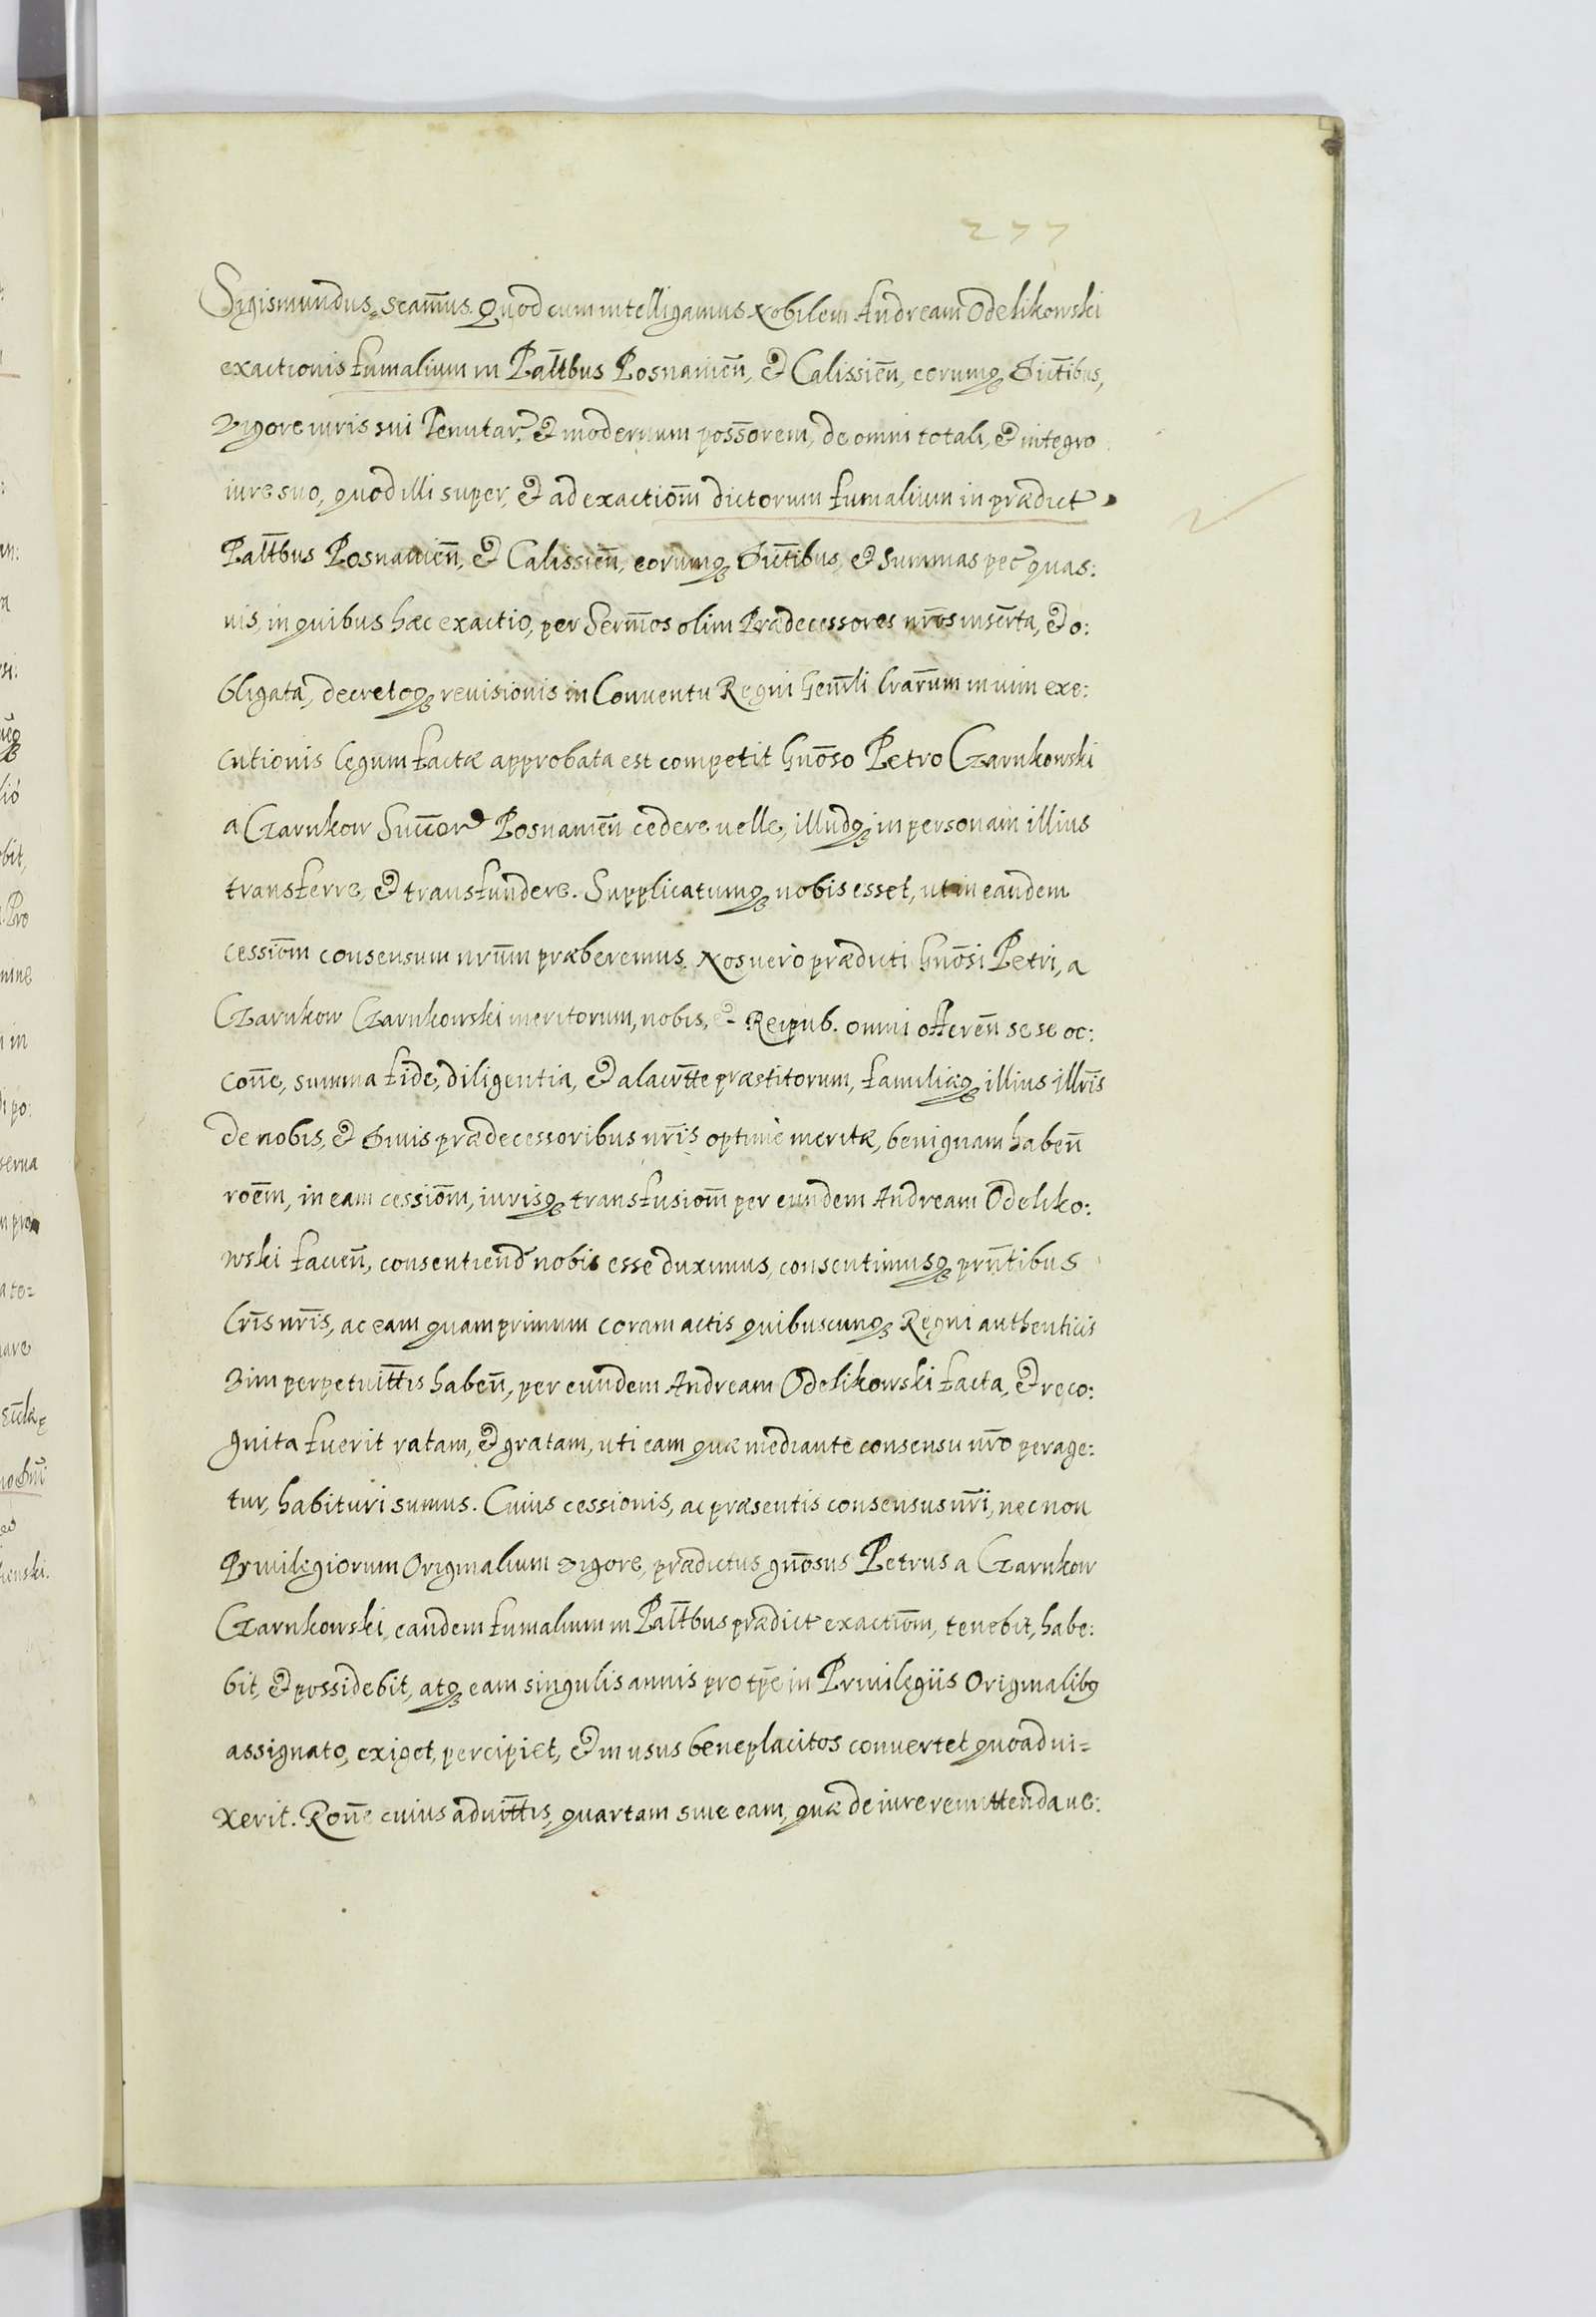 277
Sigismundus. Scam̄us. Quod cum intelligamus Nobilem Andream Odelikowski
exactionis fumalium in Palt̄bus Posnanien̄, et Calissien̄, eorumq; Disct̄ibus,
vigore iuris sui Tenutar. et modernum poss̄orem, de omni totali, et integro
iure suo, quod illi super, et ad exactiōm dictorum fumalium in prædict
Palt̄bus Posnanien̄, et Calissien̄, eorumq; Dict̄ibus, et summas pec quas:
uis, in quibus hæc exactio, per Serm̄os olim Prædecessores nr̄os inscr̄ta, et o:
bligata, decretoq; reuisionis in Conuentu Regni Gen̄rli lrar̄um in uim exe:
cutionis legum factæ approbata est competit Gn̄oso Petro Czarnkowski
a Czarnkow Succor Posnanien̄ cedere uelle, illudq; in personam illius
transferre, et transfundere. Supplicatumq; nobis esset, ut in eandem
cessiōm consensum nrūm præberemus. Nos uerò prædicti Gn̄osi Petri, a
Czarnkow Czarnkowski meritorum, nobis, et Reipub. omni offeren̄ se se oc:
con̄e, summa fide, diligentia, et alacrt̄te præstitorum, familiæq; illius illr̄is
de nobis, et Diuis prædecessoribus nr̄is optimè meritæ, benignam haben̄
roēm, in eam cessiōm, iurisq; transfusiōm per eundem Andream Odeliko:
wski facien̄, consentiend nobis esse duximus, consentimusq; prn̄tibus
lr̄is nr̄is, ac eam quamprimum coram actis quibuscunq; Regni authenticis
Vim perpetuitt̄is haben̄, per eundem Andream Odelikowski facta, et reco:
gnita fuerit ratam, et gratam, uti eam quæ mediante consensu nr̄o perage:
tur, habituri sumus. Cuius cessionis, ac præsentis consensus nr̄i, nec non
Priuilegiorum Originalium vigore, prædictus gn̄osus Petrus a Czarnkow
Czarnkowski, eandem fumalium in Palt̄bus prædict exactiōm, tenebit, habe:
bit, et possidebit, atq; eam singulis annis pro tp̄e in Priuilegiis Originalibq
assignato, exiget, percipiet, et in usus beneplacitos conuertet quoad ui=
xerit. Ron̄e cuius aduitt̄is, quartam siue eam, quæ de iure remittenda ue: